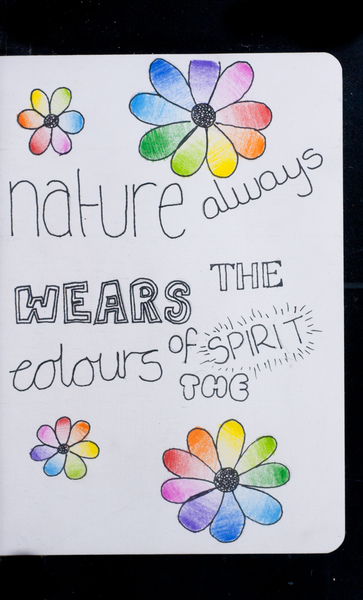 nature always
WEARS THE
colours of SPIRIT
THE